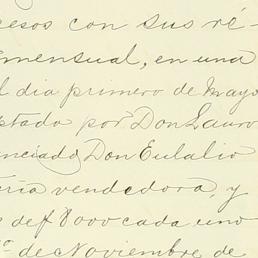 cesos con sus ré-
mensual, en una
l dia primero de Mayo
ptado por Don Lauro
enciado, Don Eulalio
ría vendedora, y
de $ 8000 cada uno
de Noviembre de